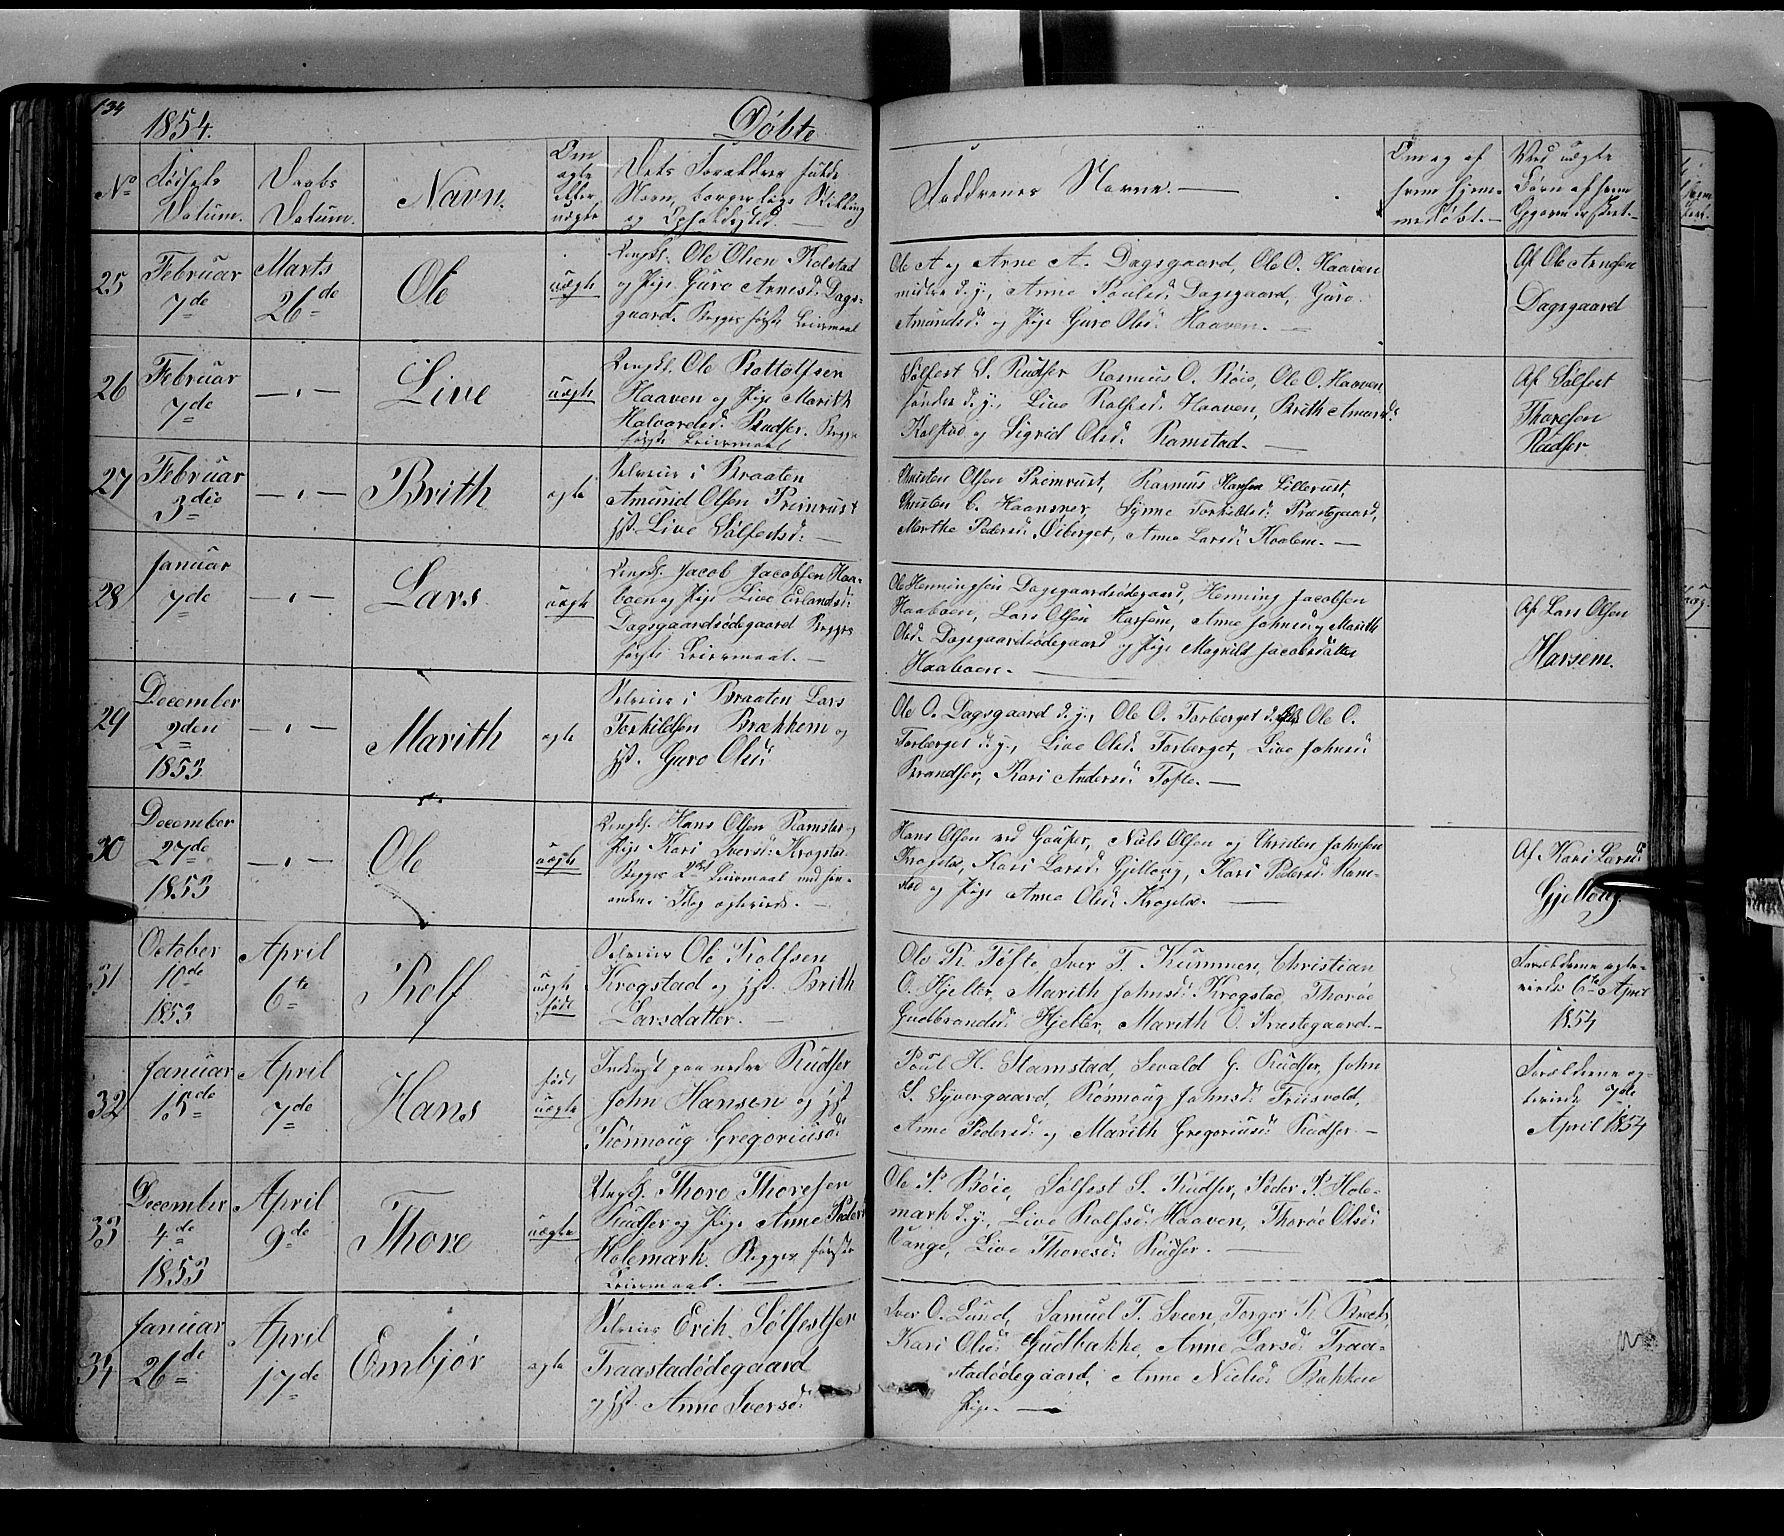 134
1854.
Døbte
No
Fødsels
Datum.
Daabs
Datum.
Navn.
Om
ægte
eller
uægte
Dets Forældres fulde
Navn, borgerlige Stilling
og Opholdssted.
Faddrenes Navne. —
Om og af
hvem hjem-
medøbt. —
Ved uægte
Børn af hvem
25
Februar
7de
Marts
26de
Ole
uægte
Ungk. Ole Olsen Kolstad
og Pige Guro Arnesd: Dags-
gaard. Begges første Leiermaal
Ole A og Arne A. Dagsgaard, Ole O. Haaven
midtre d. y., Anne Poulsd: Dagsgaard, Guro
Amundsd: og Pige Guro Olsd: Haaven. —
Af Ole Arnesen
Dagsgaard
26
Februar
7de
— " —
Live
uægte
Ungk. Ole Rottolfsen
Haaven og Pige Marith
Halvardsd: Rudser. Begges
første Leiermaal
Sølfest S. Rudser Rasmus O. Bøie, Ole O. Haaven
søndre d. y., Live Rolfsd: Haaven, Brith Amunds:
Kolstad og Sigrid Olsd: Ramstad. —
Af Sølfest
Thoresen
Rudser
27
Februar
3die
— " —
Brith
ægte
Selveier i Braaten
Amund Olsen Preinrust
Hst. Live Sølfestsd: —
Christen Olsen Preinrust, Rasmus Hansen Lillerust,
Christen C. Haansner, Synne Torkildsd: Præstegaard,
Marthe Pedersd: Øiberget, Anne Larsd: Kaalem. —
28
Januar
7de
— " —
Lars
uægte
Ungk. Jacob Jacobsen Haa-
boen og Pige Live Erlandsd:
Dagsgaardsødegaard Begges
første Leiermaal. —
Ole Henningsen Dagsgaardsødegaard, Henning Jacobsen
Haaboen, Lars Olsen Harsem, Anne Johnsd: og Marith
Olsd: Dagsgaardsødegaard og Pige Magnild Jacobsdatter
Haaboen. —
Af Lars Olsen
Harsem.
29
December
2den
1853
— " —
Marith
ægte
Selveier i Braaten Lars
Torkildsen Brækkem og
Hst. Guro Olsd:
Ole O. Dagsgaard d. y., Ole O. Torberget d. Ole O.
Torberget d. y., Live Olsd: Torberget, Live Johnsd:
Brandser, Kari Andersd: Tofte. —
30
December
27de
1853
— " —
Ole
uægte
Ungk. Hans Olsen Ramstad og
Pige Kari Iversd: Krogstad.
Begges 2det Leiermaal med hin-
anden. Idag ægteviede. —
Hans Olsen ved Niels Olsen og Christen Johnsen
Krogstad, Kari Larsd: Gjelloug, Kari Pedersd: Ram-
stad og Pige Anne Olsd: Krogstad. —
Af Kari Larsd:
Gjelloug.
31
October
10de
1853
April
6te
Rolf
uægte
født
Selveier Ole Rolfsen
Krogstad og Hst. Brith
Larsdatter. —
Ole R. Tofte Iver T. Kummen, Christian
O. Hjelter, Marith Johnsd: Krogstad, Thorøe
Gudbrandsd: Hjelter, Marith O. Præstegaard. —
Forældrene ægte-
viede 6te April
1854
32
Januar
15de
April
7de
Hans
født
uægte
Inderst paa nedre Rudser
John Hansen og Hst.
Rønnoug Gregoriusd:
Poul H. Stamstad, Sevald G. Rudser, John
S. Syvergaard, Rønnoug Johnsd: Friisvold,
Anne Pedersd: og Marith Gregoriusd: Rudser. —
Forældrene æg-
teviede 7de
April 1854
33
December
4de
1853
April
9de
Thore
uægte
Ungk. Thore Thoresen
Rudser og Pige Anne Peders:
Holemark. Begges første
Leiermaal. —
Ole P. Bøie, Sølfest S. Rudser, Peder P. Hole-
mark d. y., Live Rolfsd: Haaven, Thorøe Olsd:
Vange, Live Thoresd: Rudser. —
34
Januar
26de
April
17de
Embjør
ægte
Selveier Erik Sølfestsen
Traastadødegaard
og Hst. Anne Iversd:
Iver O. Lund, Samuel T. Sveen, Torger R. Bræk,
Kari Olsd: Gudbakke, Anne Larsd: Traa-
stadødegaard, Anne Nielsd: Bakken
Pige. —